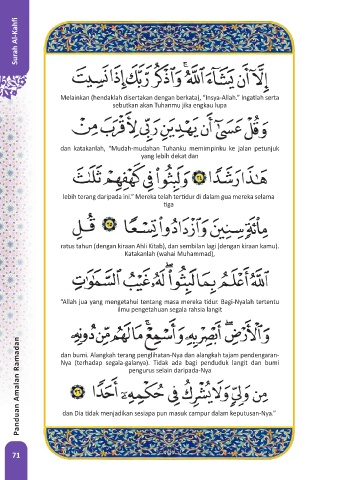 Surah Al-Kahfi
إِلَّآ أَن يَشَآءَ ٱللَّهُ ۚ وَٱذْكُر رَّبَّكَ إِذَا نَسِيتَ
Melainkan (hendaklah disertakan dengan berkata), "Insya-Allah." Ingatlah serta
sebutkan akan Tuhanmu jika engkau lupa
وَقُلْ عَسَىٰٓ أَن يَهْدِيَنِ رَبِّى لِأَقْرَبَ مِنْ
dan katakanlah, "Mudah-mudahan Tuhanku memimpinku ke jalan petunjuk
yang lebih dekat dan
هَـٰذَا رَشَدًا ٢٤ وَلَبِثُوا۟ فِى كَهْفِهِمْ ثَلَـٰثَ
lebih terang daripada ini." Mereka telah tertidur di dalam gua mereka selama
tiga
مِا۟ئَةٍ سِنِينَ وَٱزْدَادُوا۟ تِسْعًا ٢٥ قُلِ
ratus tahun (dengan kiraan Ahli Kitab), dan sembilan lagi (dengan kiraan kamu).
Katakanlah (wahai Muhammad),
ٱللَّهُ أَعْلَمُ بِمَا لَبِثُوا۟ ۖ لَهُۥ غَيْبُ ٱلسَّمَـٰوَٰتِ
"Allah jua yang mengetahui tentang masa mereka tidur. Bagi-Nyalah tertentu
ilmu pengetahuan segala rahsia langit
وَٱلْأَرْضِ ۖ أَبْصِرْ بِهِۦ وَأَسْمِعْ ۚ مَا لَهُم مِّن دُونِهِۦ
dan bumi. Alangkah terang penglihatan-Nya dan alangkah tajam pendengaran-
Nya (terhadap segala-galanya). Tidak ada bagi penduduk langit dan bumi
pengurus selain daripada-Nya
مِن وَلِىٍّ وَلَا يُشْرِكُ فِى حُكْمِهِۦٓ أَحَدًا ٢٦
dan Dia tidak menjadikan sesiapa pun masuk campur dalam keputusan-Nya."
Panduan Amalan Ramadan
71